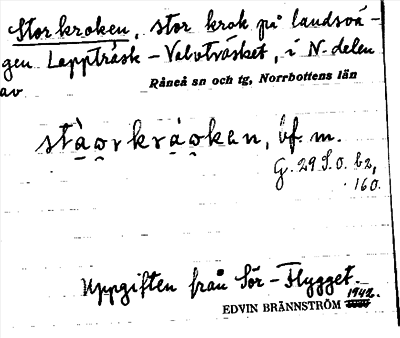 Storkroken, stor krok på landsvä-
gen Lappträsk - Valvträsket, i N-delen
av Råneå sn och tg, Norrbottens län
stà̱o̱rkrá̱o̱kan, bf. m.
G. 29 S.O. b2,
160.
Uppgiften från Sör-Flygget.
1942.
EDVIN BRÄNNSTRÖM